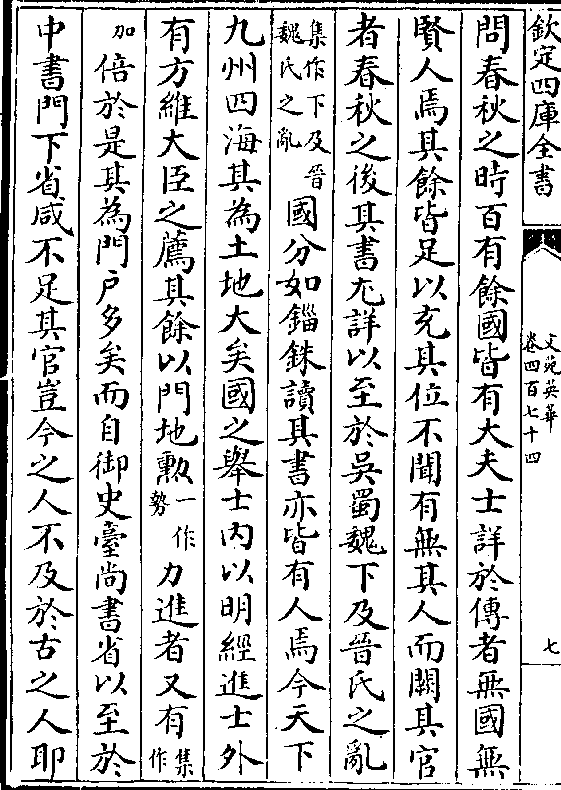 欽定四庫全書
文苑英華
卷四百七十四
七
問春秋之時百有餘國皆有大夫士詳於傳者無國無
賢人焉其餘皆足以充其位不聞有無其人而闕其官
者春秋之後其書尤詳以至於吳蜀魏下及晉氏之亂
集作下及晉
魏氏之亂
國分如錙銖讀其書亦皆有人焉今天下
九州四海其為土地大矣國之舉士內以明經進士外
有方維大臣之薦其餘以門地勲
一作
勢
力進者又有
集作
加
倍於是其為門户多矣而自御史臺尚書省以至於
中書門下省咸不足其官豈今之人不及於古之人耶